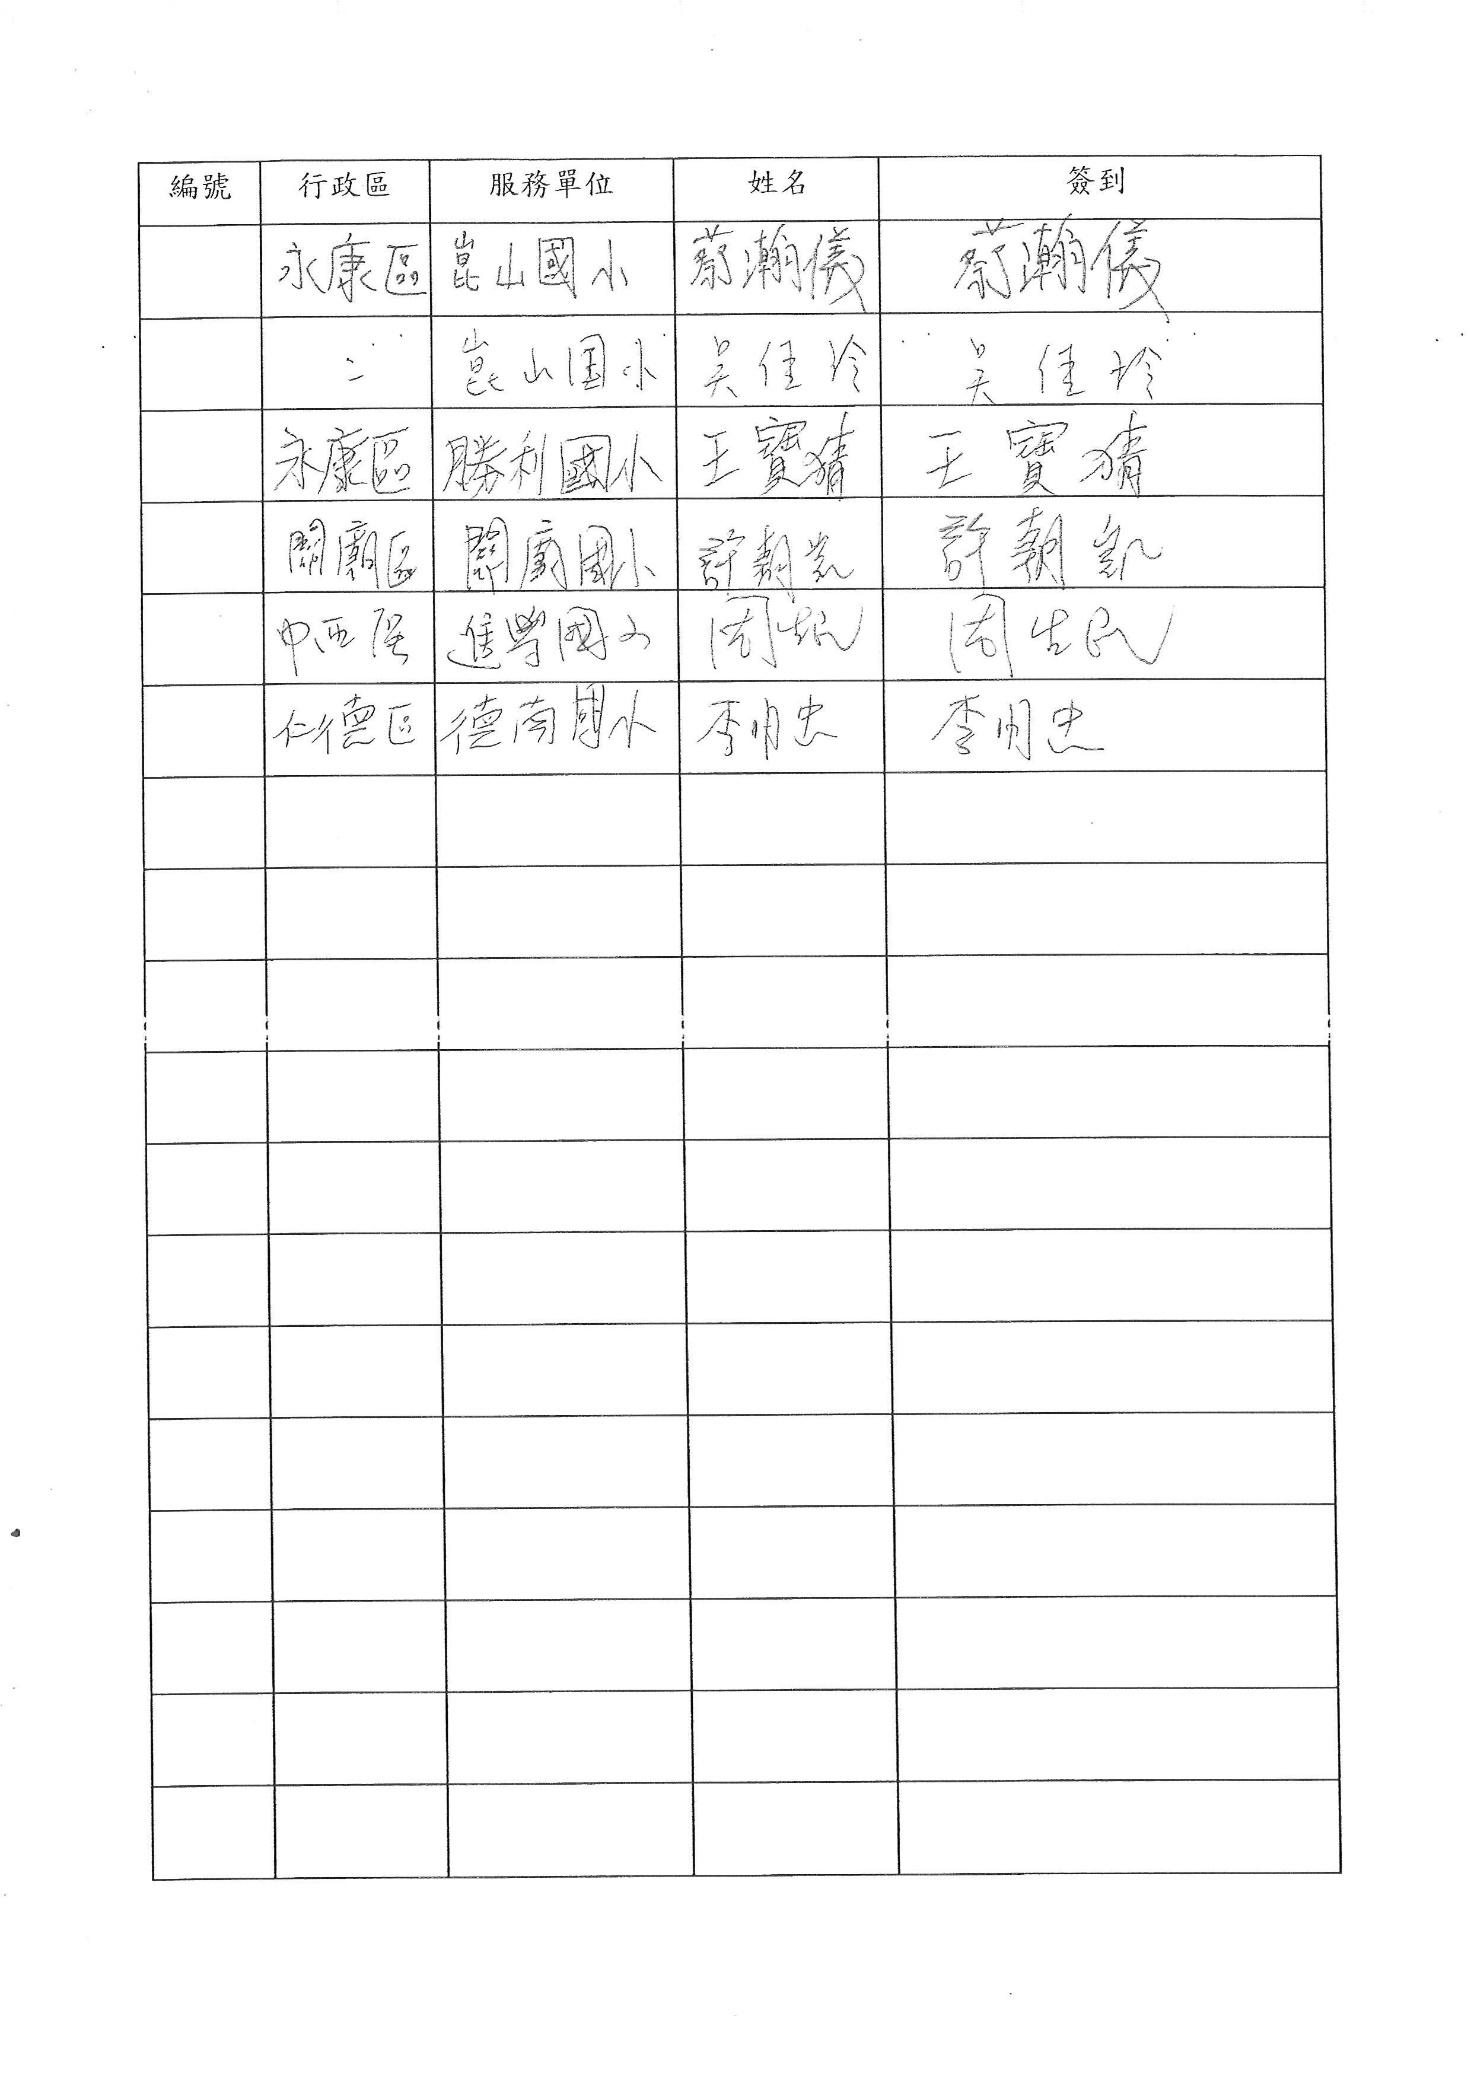 編號 行政區 服務單位 姓名 簽到
永康區 崑山國小 蔡瀚儀 蔡瀚儀
〃 崑山国小 吳佳玲 吳佳玲
永康區 勝利國小 王寶猜 王寶猜
關廟區 關廟國小 許朝凱 許朝凱
中西區 進學國小 周 周
仁德區 德南國小 李明忠 李明忠